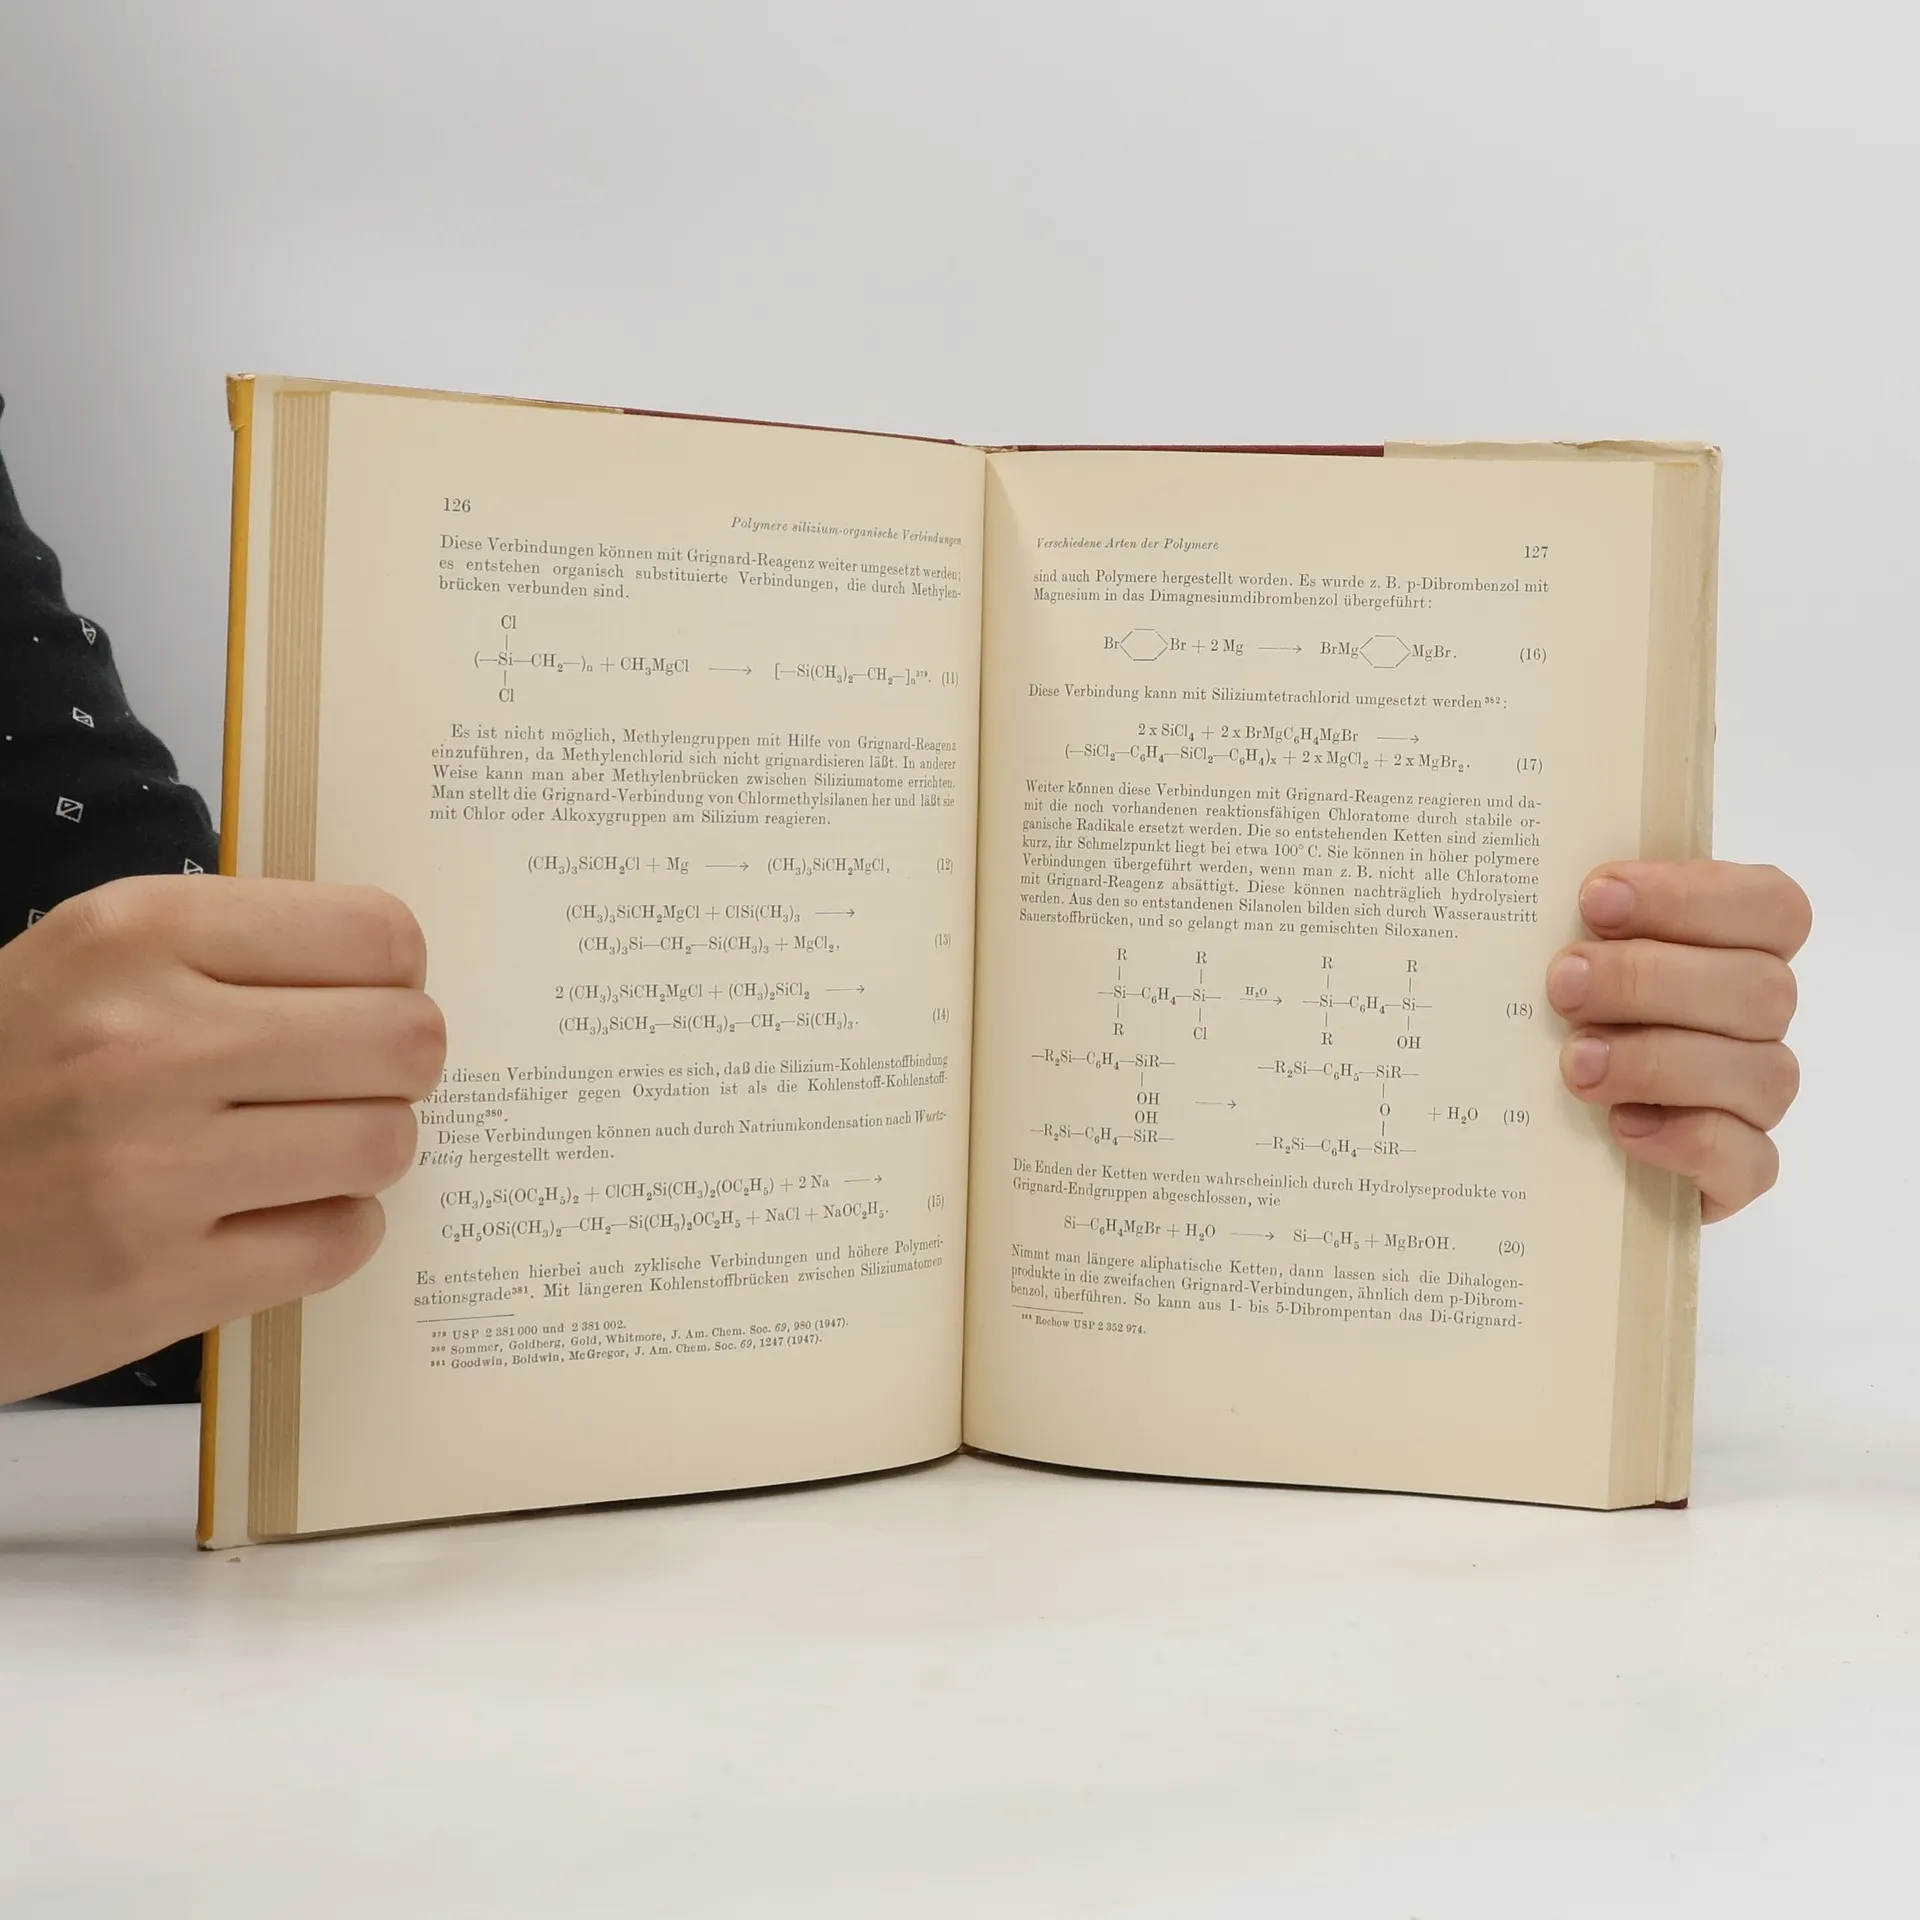 126
Polymere silizium-organische Verbindungen
Diese Verbindungen können mit Grignard-Reagenz weiter umgesetzt werden;
es entstehen organisch substituierte Verbindungen, die durch Methylen-
brücken verbunden sind.
Cl
|
(—Si—CH₂—)ₙ + CH₃MgCl ⟶ [—Si(CH₃)₂—CH₂—]ₙ³⁷⁹. (11)
|
Cl
Es ist nicht möglich, Methylengruppen mit Hilfe von Grignard-Reagenz
einzuführen, da Methylenchlorid sich nicht grignardisieren läßt. In anderer
Weise kann man aber Methylenbrücken zwischen Siliziumatome errichten.
Man stellt die Grignard-Verbindung von Chlormethylsilanen her und läßt sie
mit Chlor oder Alkoxygruppen am Silizium reagieren.
(CH₃)₃SiCH₂Cl + Mg ⟶ (CH₃)₃SiCH₂MgCl, (12)
(CH₃)₃SiCH₂MgCl + ClSi(CH₃)₃ ⟶
(CH₃)₃Si—CH₂—Si(CH₃)₃ + MgCl₂, (13)
2 (CH₃)₃SiCH₂MgCl + (CH₃)₂SiCl₂ ⟶
(CH₃)₃SiCH₂—Si(CH₃)₂—CH₂—Si(CH₃)₃. (14)
i diesen Verbindungen erwies es sich, daß die Silizium-Kohlenstoffbindung
widerstandsfähiger gegen Oxydation ist als die Kohlenstoff-Kohlenstoff-
bindung³⁸⁰.
Diese Verbindungen können auch durch Natriumkondensation nach Wurtz-
Fittig hergestellt werden.
(CH₃)₂Si(OC₂H₅)₂ + ClCH₂Si(CH₃)₂(OC₂H₅) + 2 Na ⟶
C₂H₅OSi(CH₃)₂—CH₂—Si(CH₃)₂OC₂H₅ + NaCl + NaOC₂H₅. (15)
Es entstehen hierbei auch zyklische Verbindungen und höhere Polymeri-
sationsgrade³⁸¹. Mit längeren Kohlenstoffbrücken zwischen Siliziumatomen
³⁷⁹ USP 2 381 000 und 2 381 002.
³⁸⁰ Sommer, Goldberg, Gold, Whitmore, J. Am. Chem. Soc. 69, 980 (1947).
³⁸¹ Goodwin, Boldwin, McGregor, J. Am. Chem. Soc. 69, 1247 (1947).
Verschiedene Arten der Polymere
127
sind auch Polymere hergestellt worden. Es wurde z. B. p-Dibrombenzol mit
Magnesium in das Dimagnesiumdibrombenzol übergeführt:
Br Br + 2 Mg ⟶ BrMg MgBr. (16)
Diese Verbindung kann mit Siliziumtetrachlorid umgesetzt werden³⁸²:
2 x SiCl₄ + 2 x BrMgC₆H₄MgBr ⟶
(—SiCl₂—C₆H₄—SiCl₂—C₆H₄)ₓ + 2 x MgCl₂ + 2 x MgBr₂. (17)
Weiter können diese Verbindungen mit Grignard-Reagenz reagieren und da-
mit die noch vorhandenen reaktionsfähigen Chloratome durch stabile or-
ganische Radikale ersetzt werden. Die so entstehenden Ketten sind ziemlich
kurz, ihr Schmelzpunkt liegt bei etwa 100° C. Sie können in höher polymere
Verbindungen übergeführt werden, wenn man z. B. nicht alle Chloratome
mit Grignard-Reagenz absättigt. Diese können nachträglich hydrolysiert
werden. Aus den so entstandenen Silanolen bilden sich durch Wasseraustritt
Sauerstoffbrücken, und so gelangt man zu gemischten Siloxanen.
R R R R
| | | |
—Si—C₆H₄—Si— H₂O ⟶ —Si—C₆H₄—Si— (18)
| | | |
R Cl R OH
—R₂Si—C₆H₄—SiR— —R₂Si—C₆H₅—SiR—
| |
OH ⟶ O + H₂O (19)
OH |
—R₂Si—C₆H₄—SiR— —R₂Si—C₆H₄—SiR—
Die Enden der Ketten werden wahrscheinlich durch Hydrolyseprodukte von
Grignard-Endgruppen abgeschlossen, wie
Si—C₆H₄MgBr + H₂O ⟶ Si—C₆H₅ + MgBrOH. (20)
Nimmt man längere aliphatische Ketten, dann lassen sich die Dihalogen-
produkte in die zweifachen Grignard-Verbindungen, ähnlich dem p-Dibrom-
benzol, überführen. So kann aus 1- bis 5-Dibrompentan das Di-Grignard-
³⁸² Rochow USP 2 352 974.